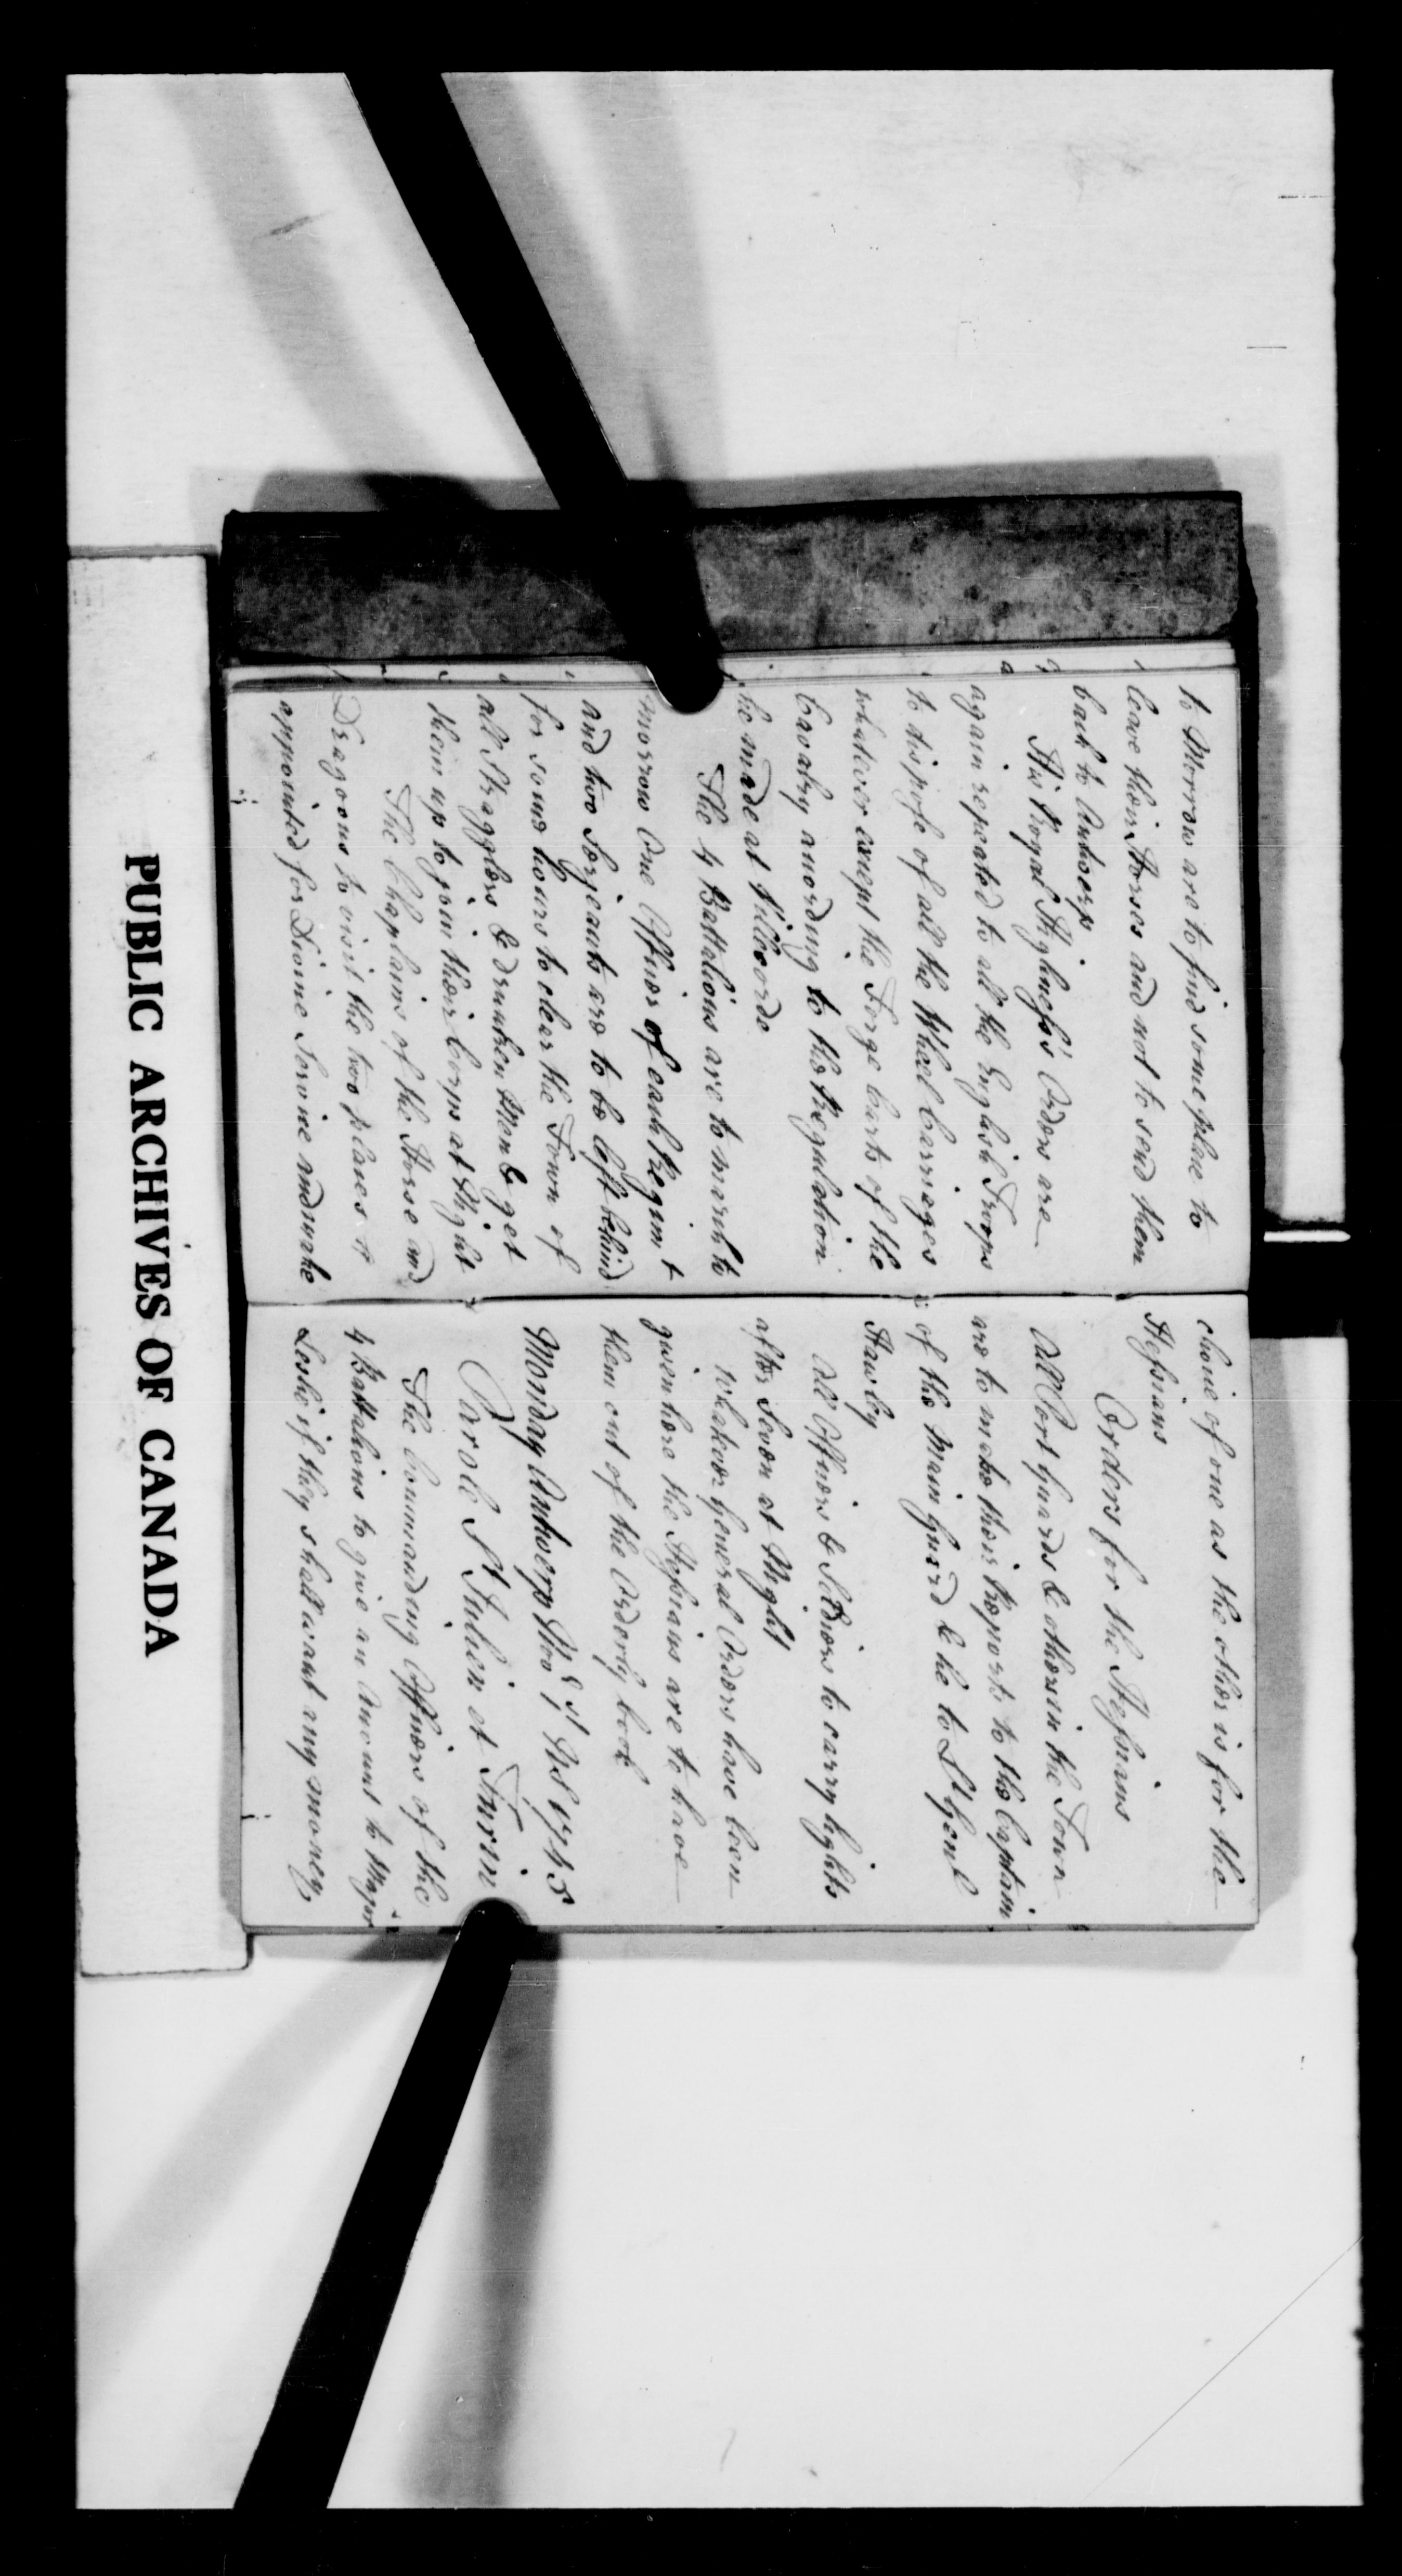 to Morrow are to find some place to
leave their Horses and not to send them
back to Antwerp
His Royal Highness's Orders are
again repeated to all the English Troops
to dispose of all the Wheel Carriages
whatever except the Forge Carts of the
Cavalry according to the Regulation
he made at Villvorde
The 4 Battalions are to march to
morrow One Officer of each Regimt
and two Serjeants are to be left behind
for some hours to clear the Town of
all Stragglers & drunken Men & get
them up to join their Corps at Night
The Chaplains of the Horse and
Dragoons to visit the two places
appointed for Divine Service and make
choice of one as the other is for the
Hessians
Orders for the Hessians
All Port Guards & others in the Town
are to make their Reports to the Captain
of the Main Guard & he to Lt Genl
Hawley
All Officers & Soldiers to carry lights
after Seven at Night
Whatever General Orders have been
given here the Hessians are to have
them out of the Orderly book
Monday Antwerp Novr 1st NS 1745
Parole St Julien et Turin
The Commanding Officers of the
4 Battalions to give an Account to Major
Leslie if they shall want any money
PUBLIC ARCHIVES OF CANADA